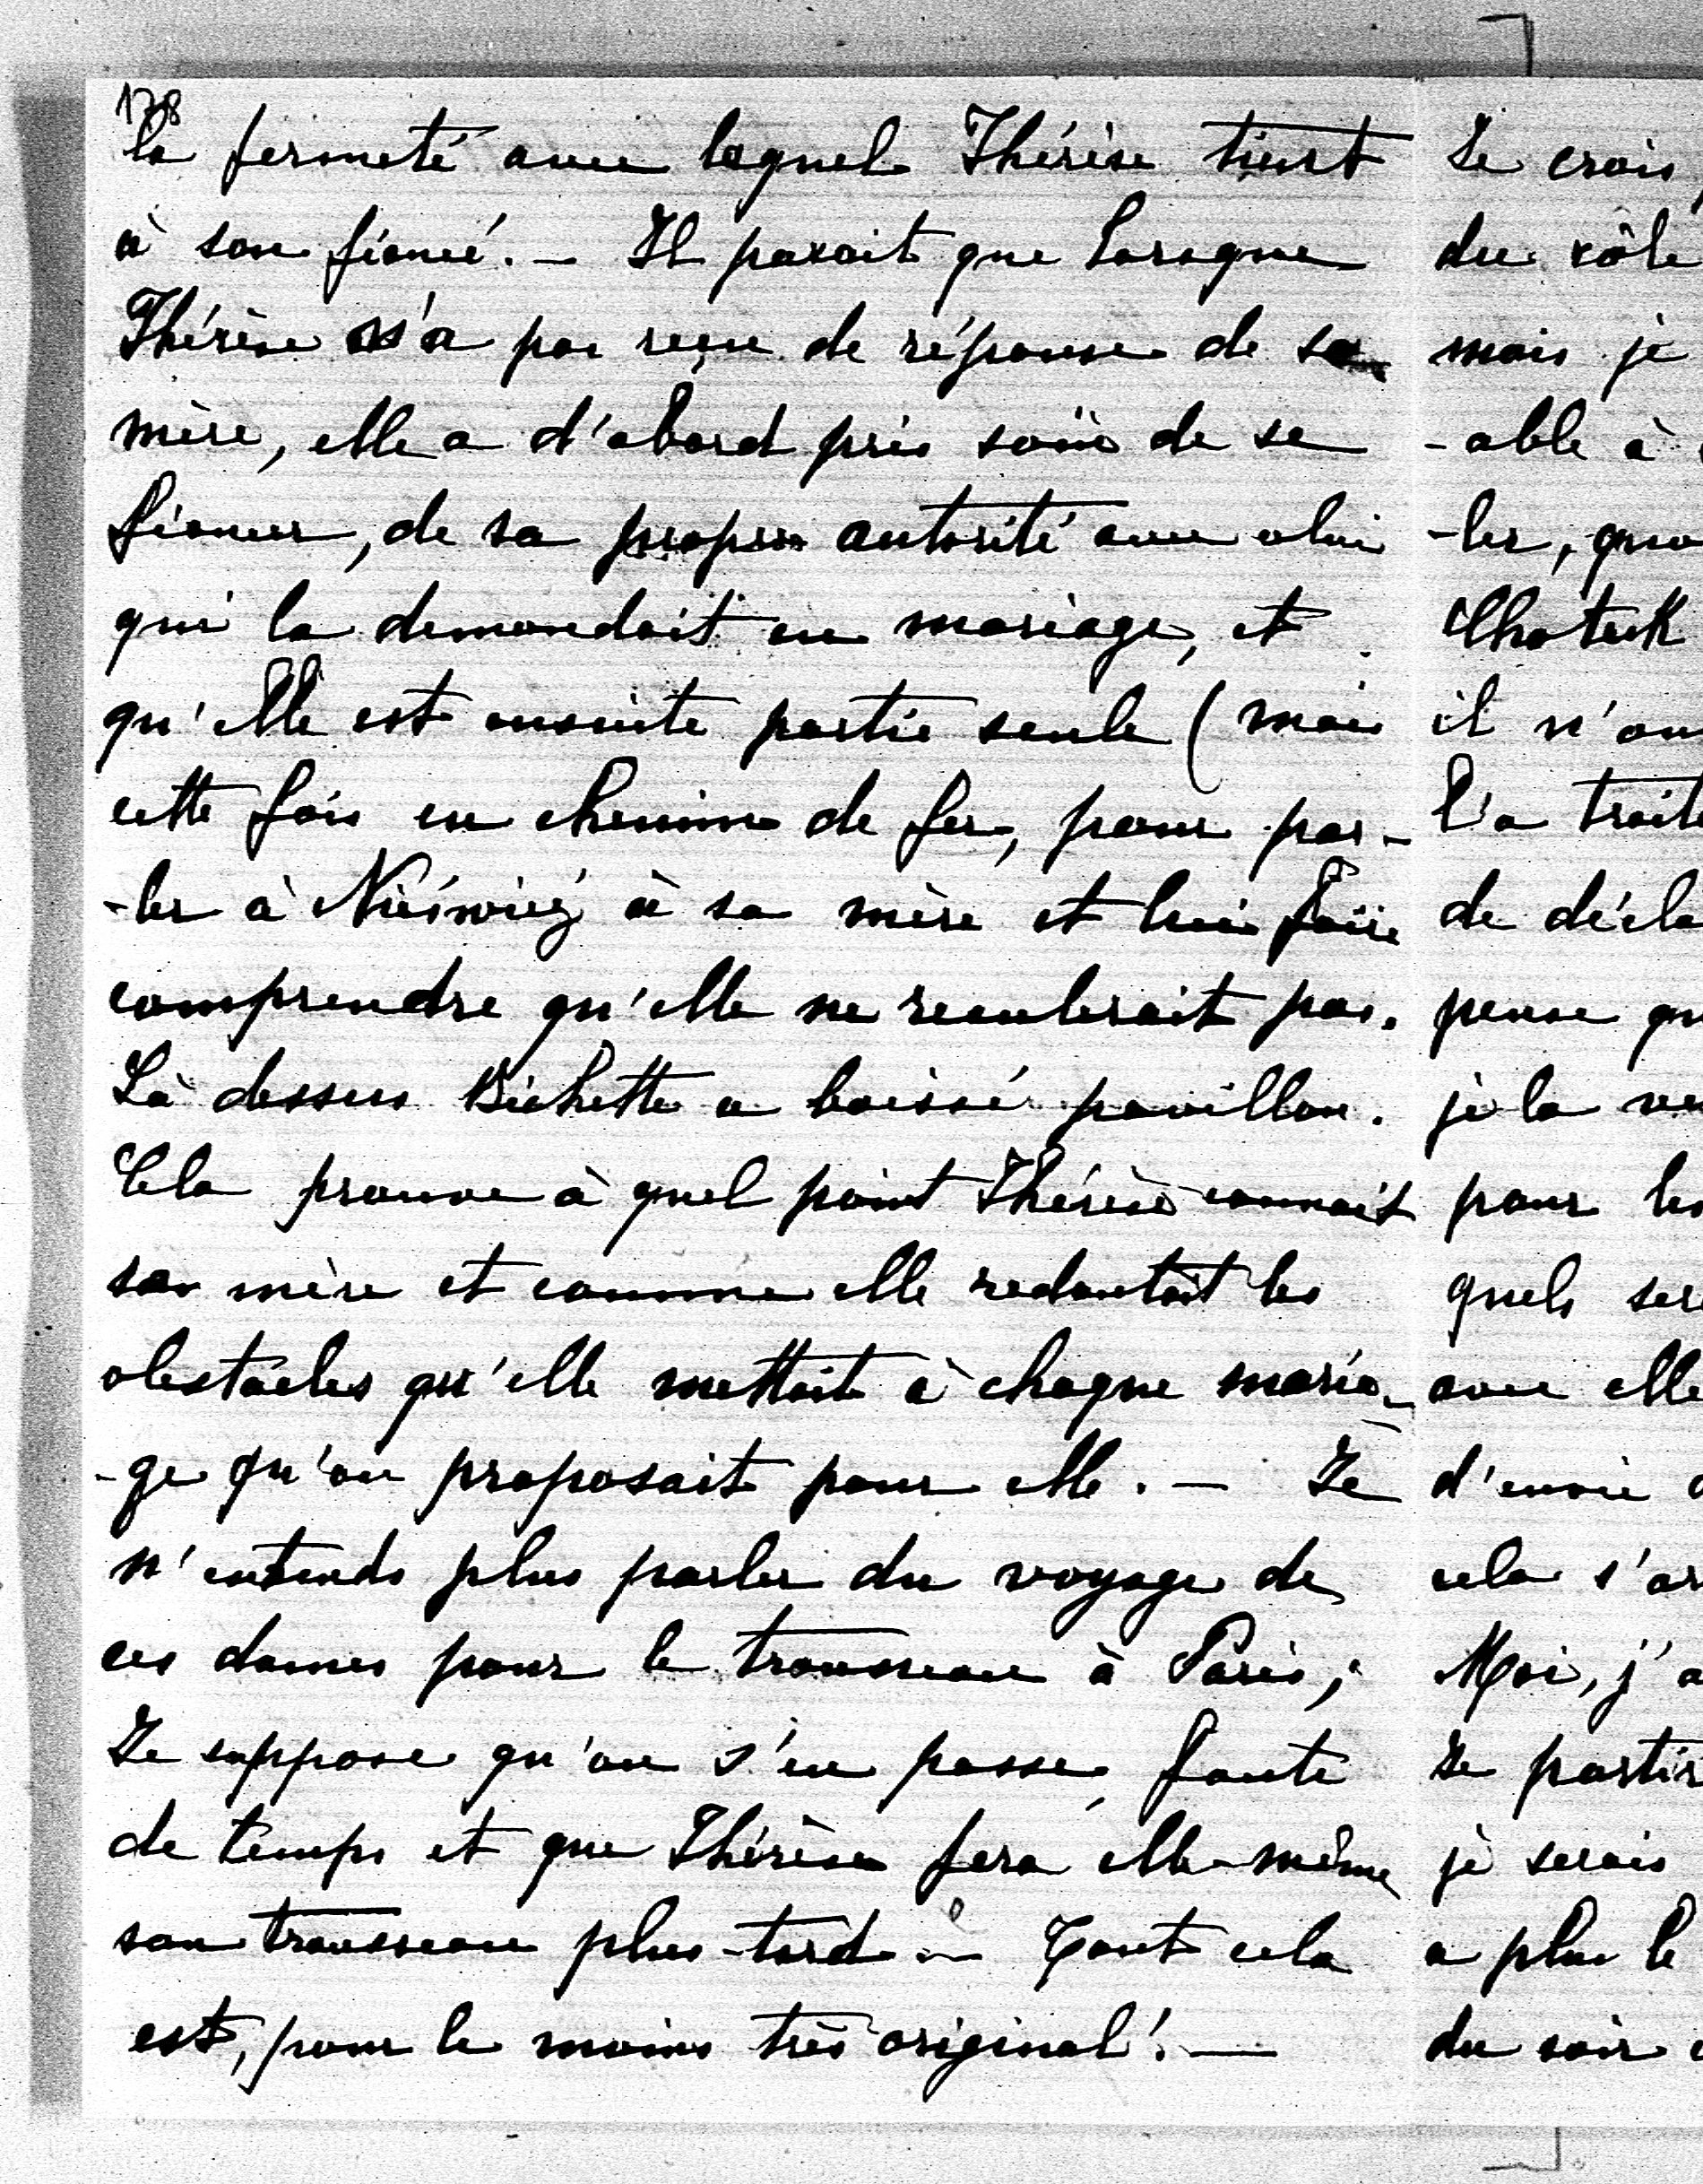 178
la fermeté avec laquel Thérèse tient
à son fiancé. — Il parait que lorsque
Thérèse n'a pas reçu de réponse de sa
mère, elle a d'abord pris soin de se
fiancer, de sa propre autorité avec celui
qui la demandait en mariage, et
qu'elle est ensuite partie seule (mais
cette fois en chemin de fer, pour par-
-ler à Nieswiez à sa mère et lui faire
comprendre qu'elle ne reculerait pas.
Là dessus Bichette a baissé pavillon.
Cela prouve à quel point Thérèse connait
sa mère et comme elle redoutait les
obstacles qu'elle mettait à chaque maria-
-ge qu'on proposait pour elle. — Je
n'entends plus parler du voyage de
ces dames pour le trousseau à Paris;
Je suppose qu'on s'en passe, faute
de temps et que Thérèse fera elle-même
son trousseau plus-tard — Tout cela
est, pour le moins très original! —
Je crois,
du rôle
mais je
-able à
-ler, quo
Choteck
il n'au
l'a traité
de décla
pense qu
je la ve
pour les
quels ser
avec elle
d'envie
cela s'ar
Moi, j'a
Je partir
je serais
a plus le
du soir